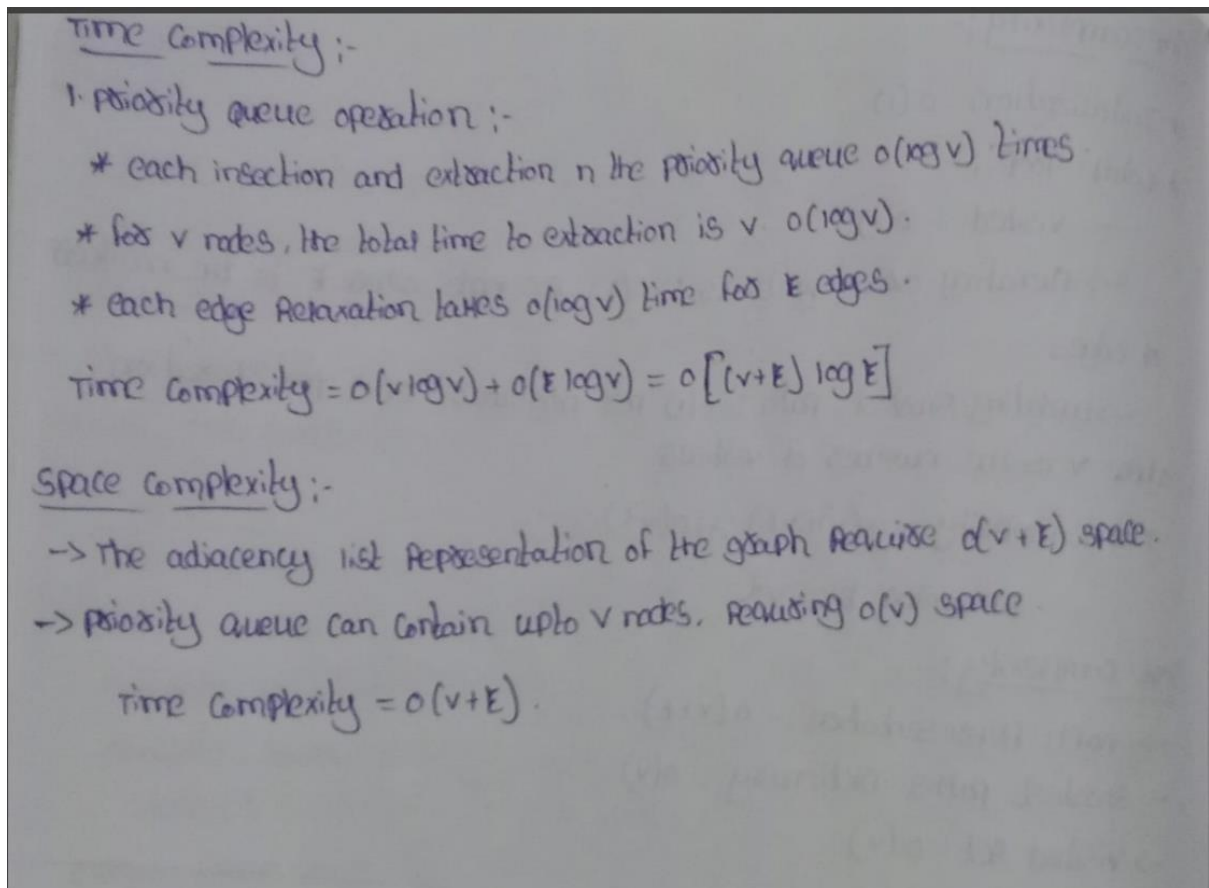 Time Complexity :-
1. priority queue operation :-
* each insection and extraction n the priority queue o(log v) times
* for v nodes, the total time to extraction is v o(log v)
* each edge Relaxation takes o(log v) time for E edges.
Time Complexity = o(v log v) + o(E log v) = o[(v+E) log E]
Space Complexity :-
-> The adjacency list Representation of the graph Require o(v+E) space.
-> priority queue can contain upto v nodes, requiring o(v) space
Time Complexity = o(v+E).